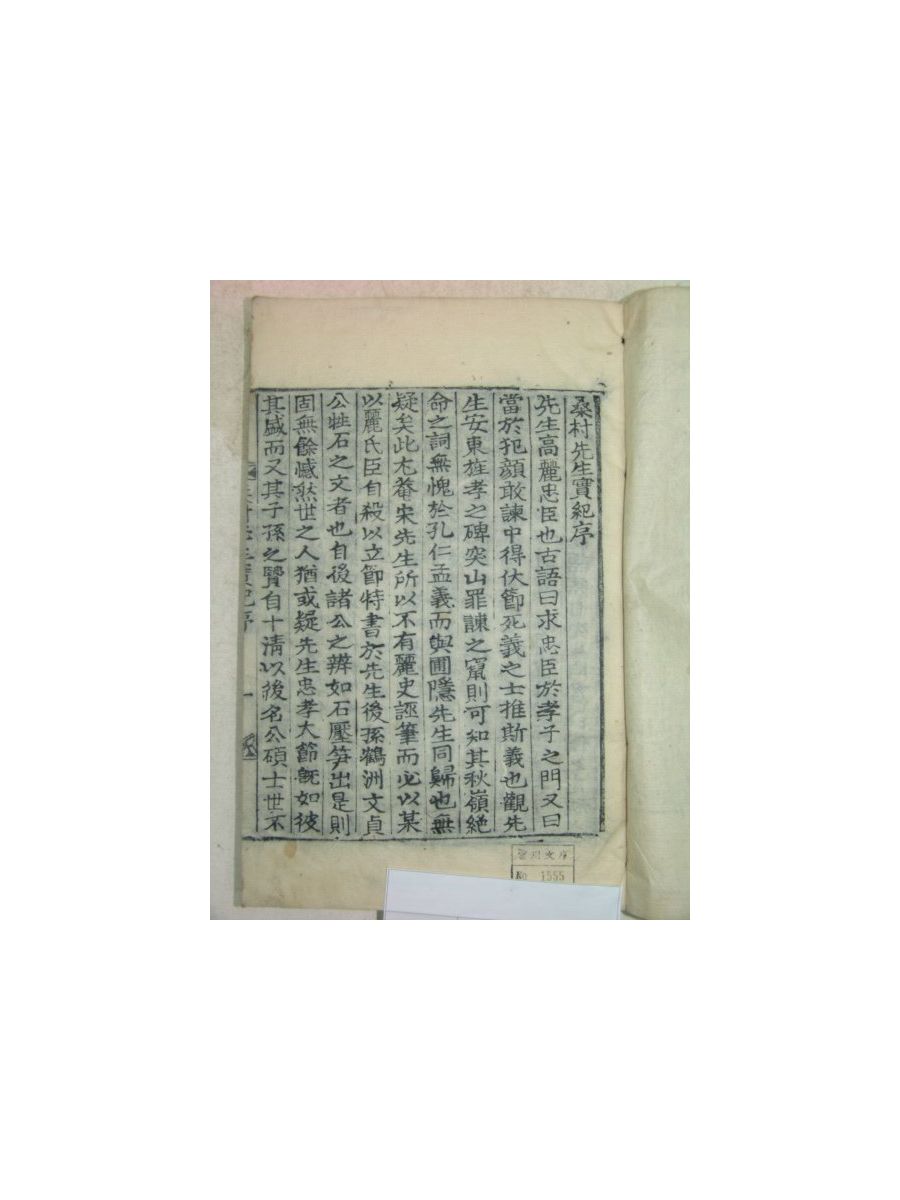 桑村先生實紀序
先生高麗忠臣也古語曰求忠臣於孝子之門又曰
當於犯顔敢諫中得伏節死義之士推斯義也觀先
生安東旌孝之碑突山罪諫之竄則可知其秋嶺絶
命之詞無愧於孔仁孟義而與圃隱先生同歸也無
疑矣此尤菴宋先生所以不有麗史誣筆而必以某
以麗氏臣自殺以立節特書於先生後孫鶴洲文貞
公牲石之文者也自後諸公之辨如石壓笋出是則
固無餘憾然世之人猶或疑先生忠孝大節旣如彼
其盛而又其子孫之賢自十淸以後名公碩士世不
文庫
No 1555